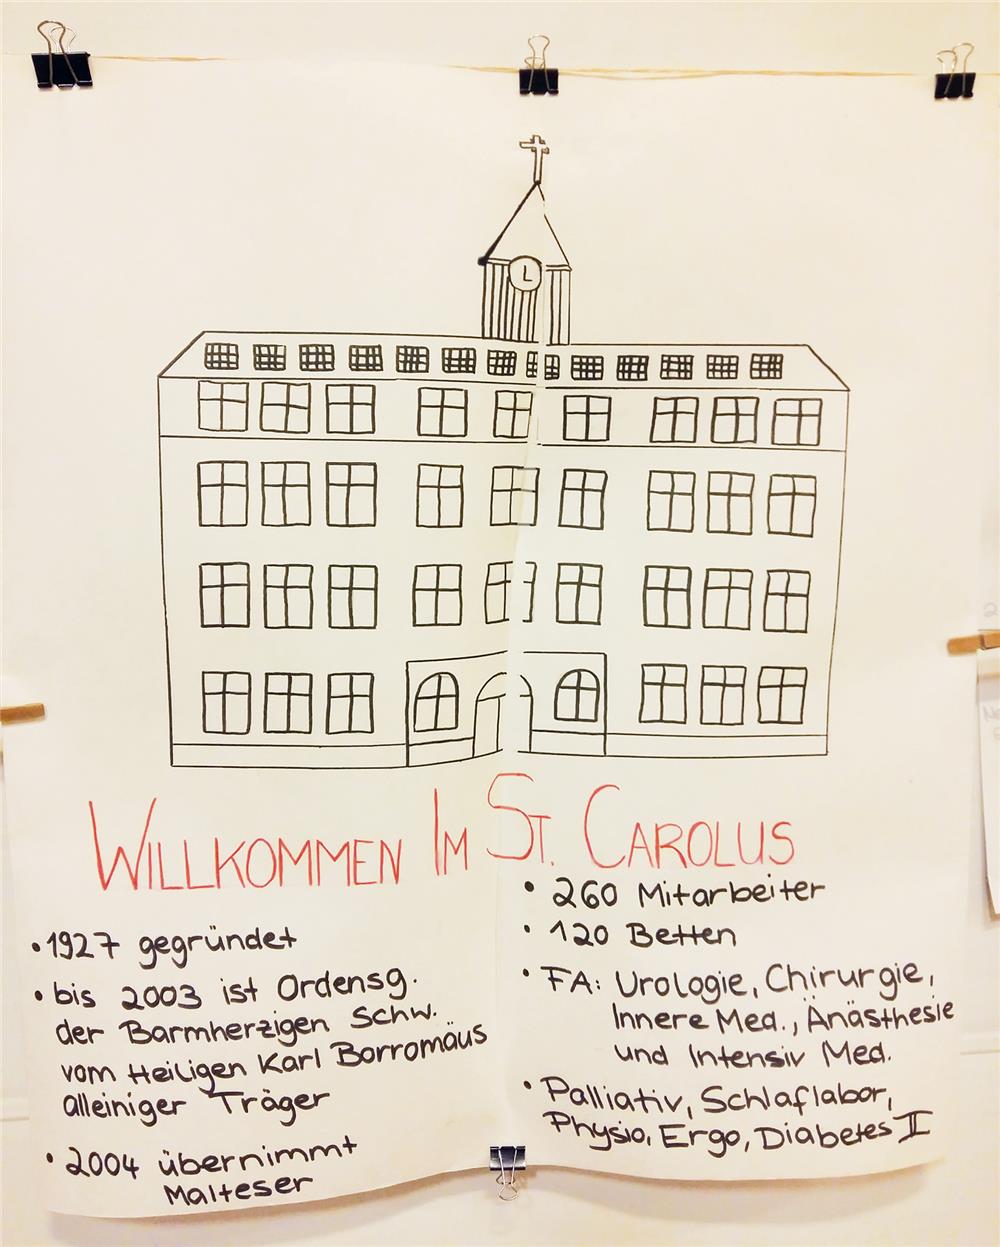 WILLKOMMEN IM ST. CAROLUS
• 1927 gegründet
• bis 2003 ist Ordensg.
der Barmherzigen Schw.
vom Heiligen Karl Borromäus
alleiniger Träger
• 2004 übernimmt
Malteser
• 260 Mitarbeiter
• 120 Betten
• FA: Urologie, Chirurgie,
Innere Med., Änästhesie
und Intensiv Med.
• Palliativ, Schlaflabor,
Physio, Ergo, Diabetes II